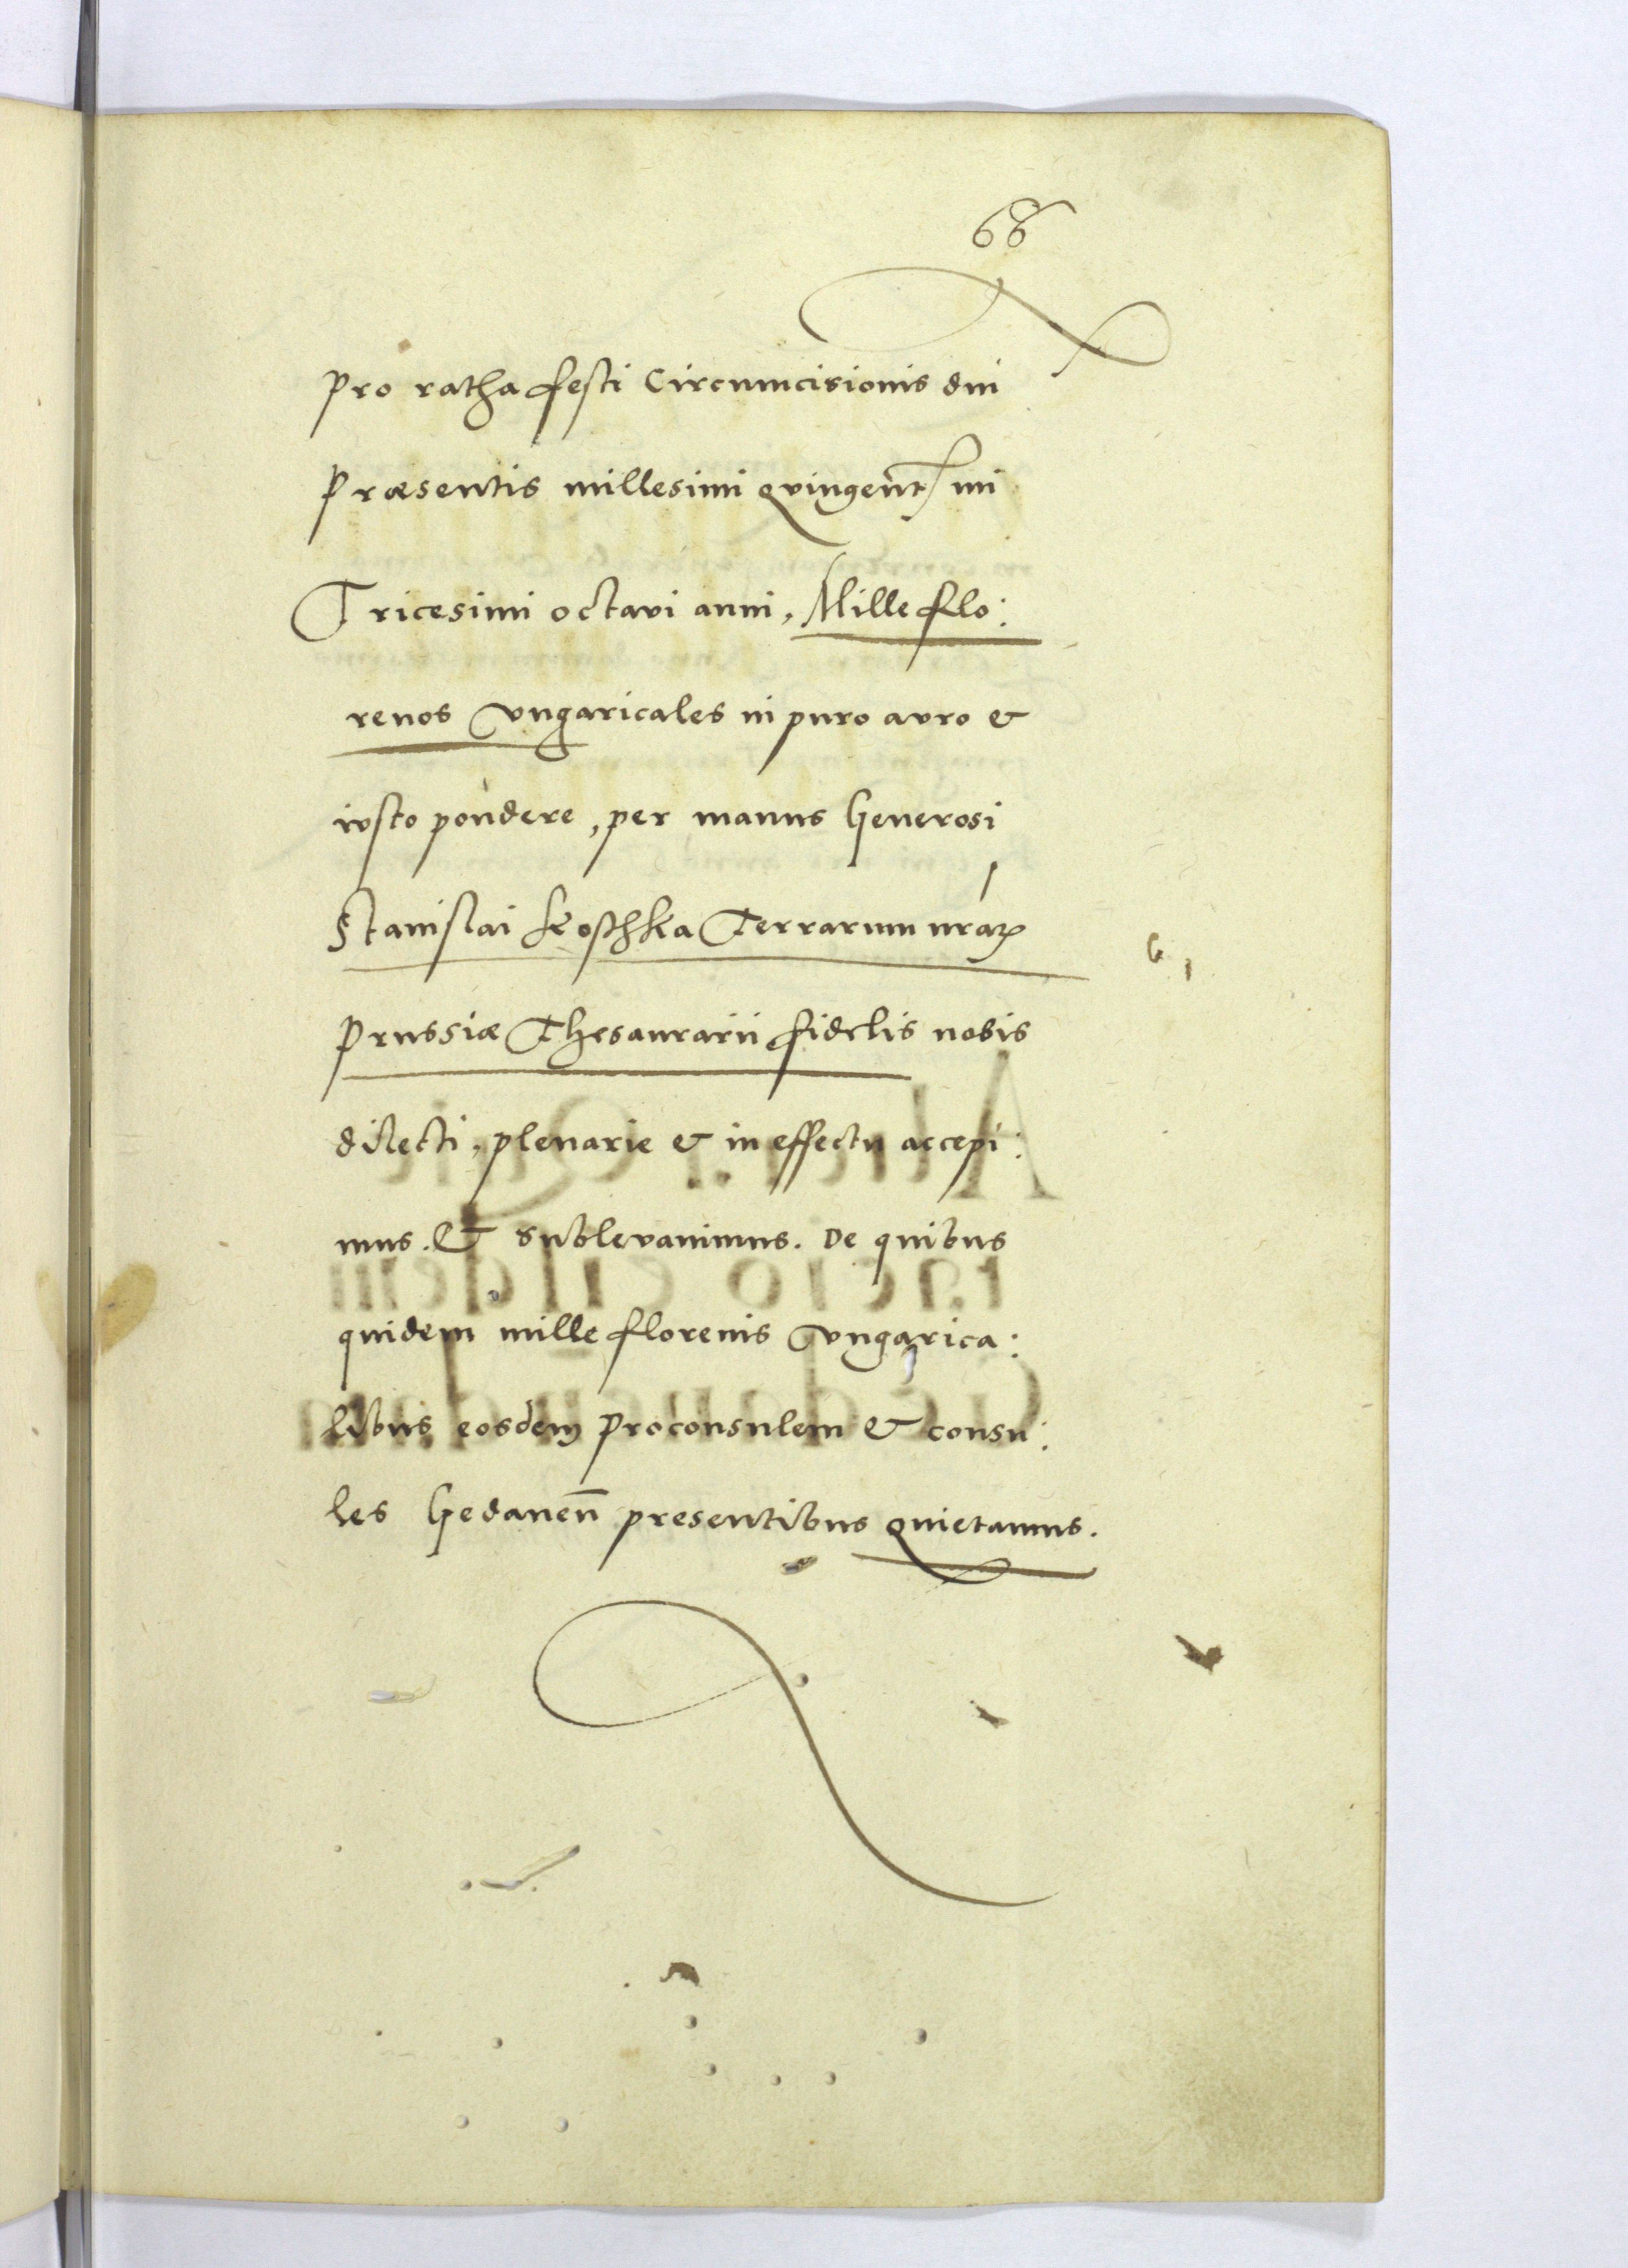 66
pro ratha festi Circumcisionis dni
præsentis millesimi qvingentmi
Tricesimi octavi anni, Mille flo:
renos vngaricales in puro avro &
ivsto pondere, per manus Generosi
Stanislai Koschka Terrarum nraꝝ
Prussiæ Thesaurarii fidelis nobis
dilecti, plenarie & in effectu accepi:
mus. & sublevavimus. De quibus
quidem mille florenis vngarica:
libus eosdem proconsulem & consu:
les Gedaneñ presentibus quietamus.